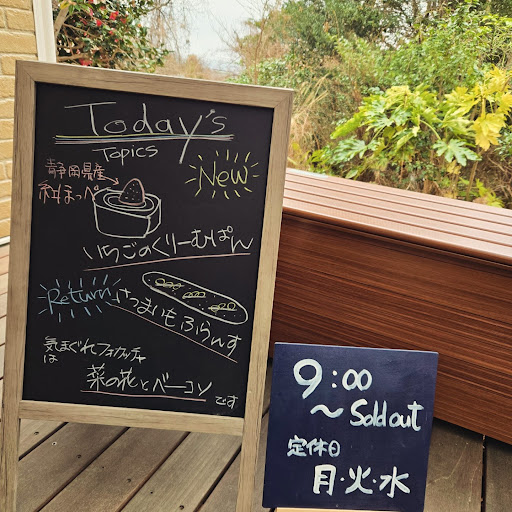 Today's
Topics
New
静岡県産
紅ほっぺ
いちごのくりーむぱん
Return
さつまいもふらんす
気まぐれフォカッチャ
は
菜の花とベーコン
です
9:00
～ Sold out
定休日
月・火・水